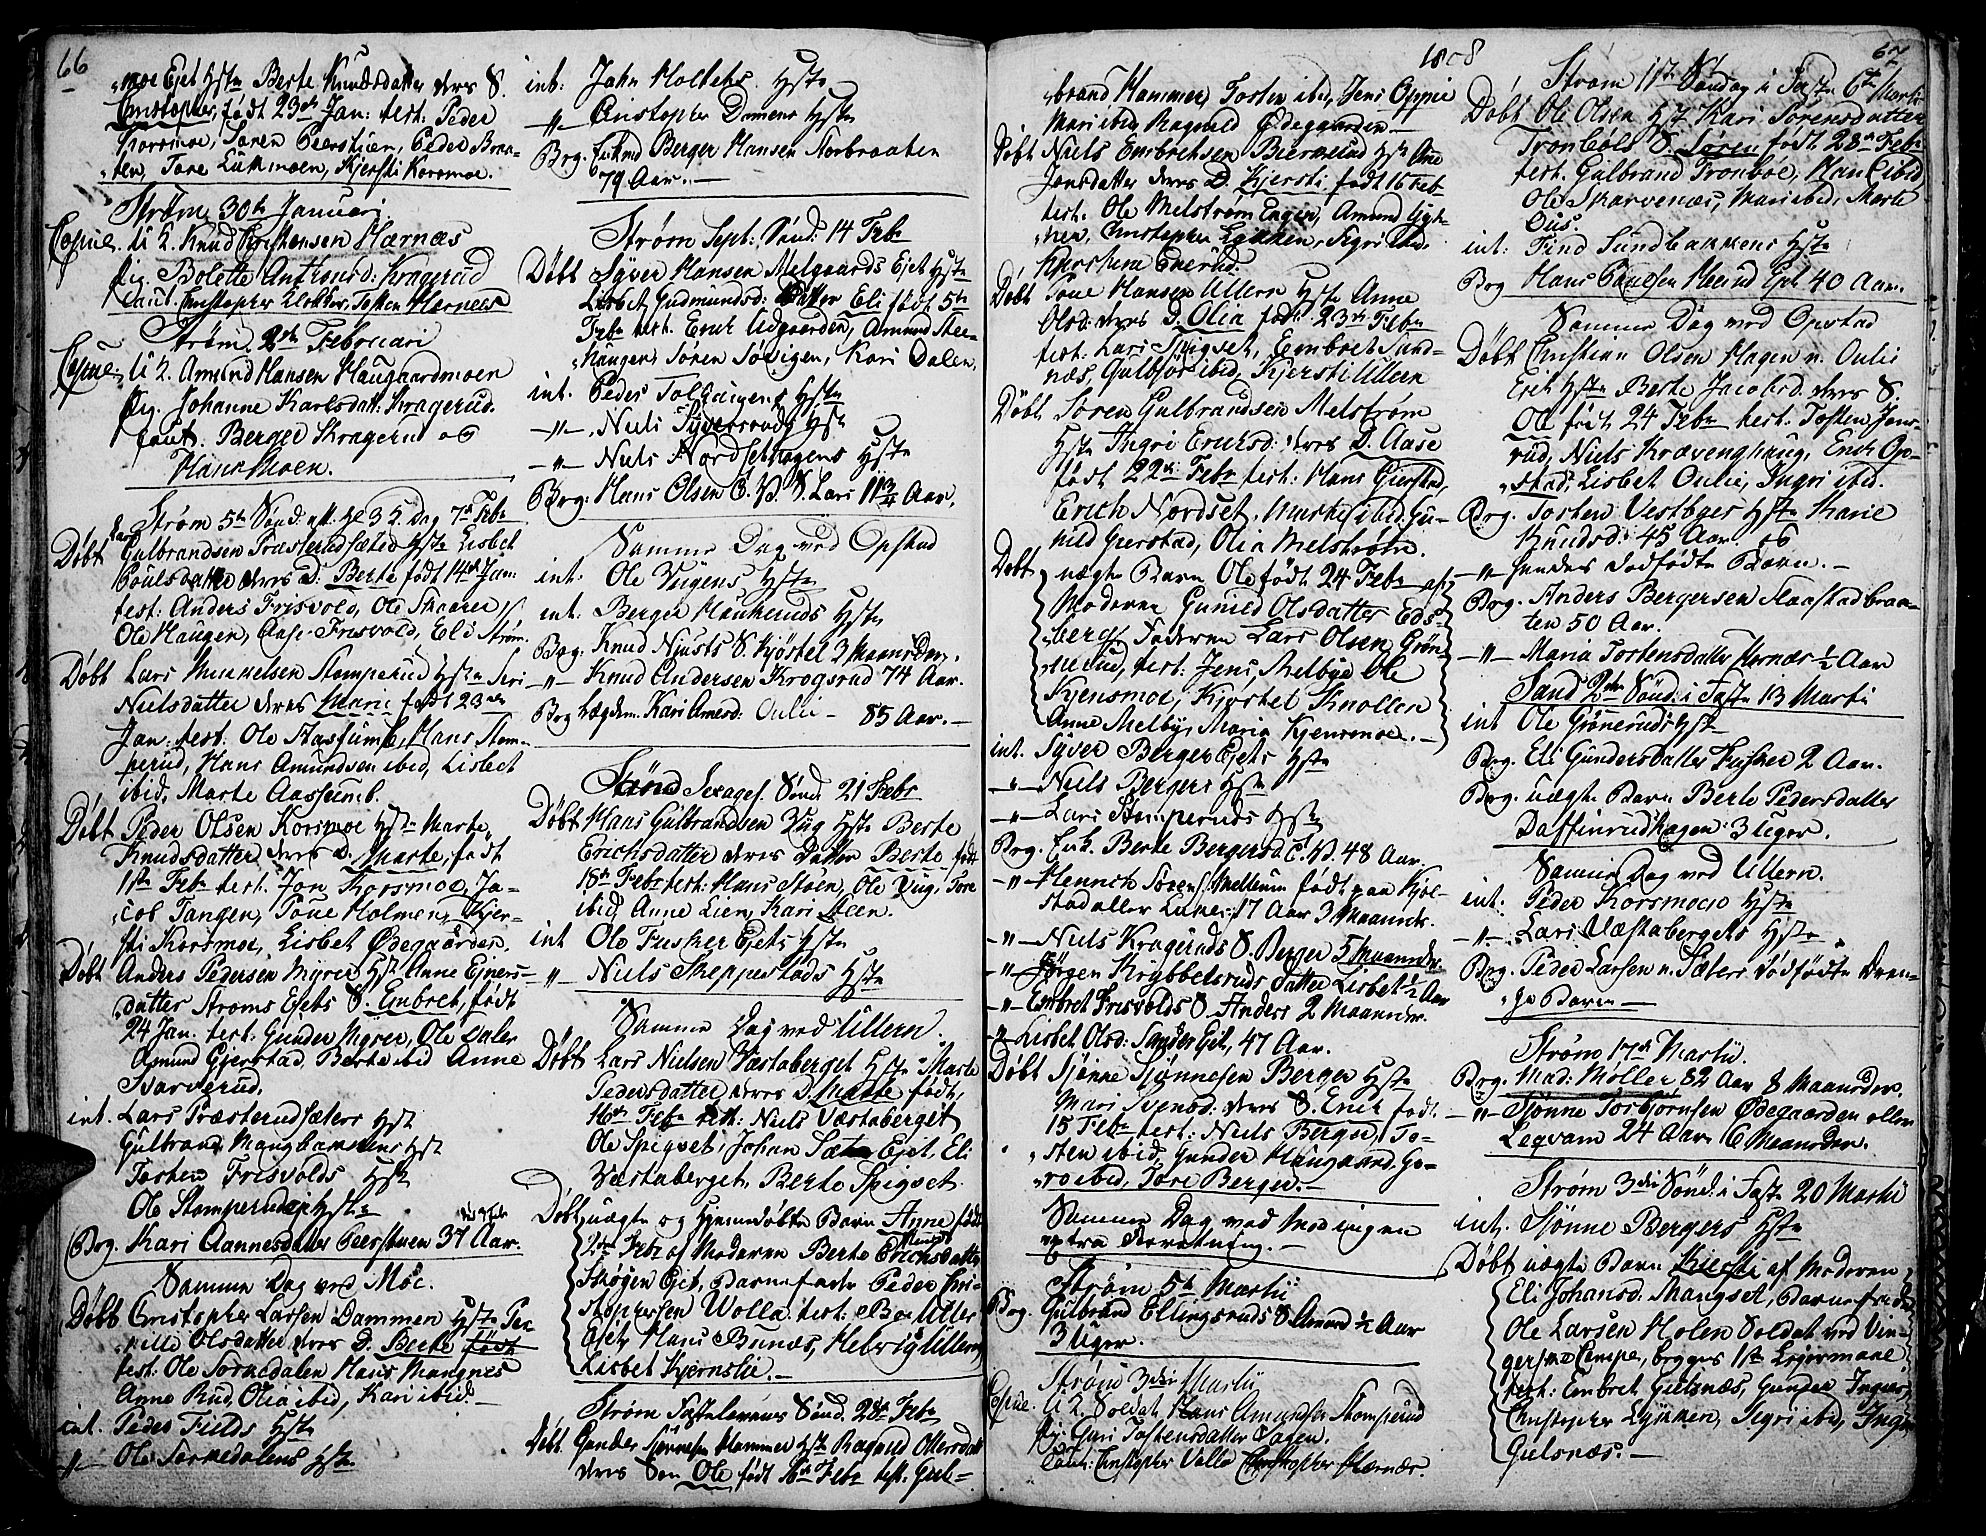 66
moe Ejet Hstr Berte Knudsdatter deres S.
Christopher, født 23de Jan: test: Peder
Korsmoe, Søren Peerstuen, Peder Braa-
ten, Tore Lükmoen, Kjersti Korsmoe.
Strøm 30te Januari
Copul. U. K. Knud Christensen Hærnæs
Pig. Bolette Antonsd: Kragerud
Caut. Christopher Klokker, Tosten Hærnæs
Strøm 2den Februari
Copul. U. K. Amund Hansen Haugaardmoen
Pig. Johanne Karlsdatt: Kragerud.
Caut. Berger Kragerud og
Hans Moen.
Strøm 5te Sönd. eft. H. 3 K. Dag 7de Febr
Lars
Døbt Gulbrandsen Træsterudsæter Hstr Lisbet
Poulsdatter deres D: Berte født 14de Jan:
test: Anders Frisvold, Ole Skaarer,
Ole Haugen, Aase Frisvold, Eli Strøm.
Døbt Lars Mikkelsen Stomperud Hstr Siri
Nielsdatter deres Marie født 23de
Jan: test: Ole Aassumb, Hans Stom-
perud, Hans Amundsen ibid, Lisbet
ibid, Marte Aassumb.
Døbt Peder Olsen Korsmoe Hstr Marte
Knudsdatter deres D. Marte, født
1ste Febr test. Jon Korsmoe, Ja-
cob Tangen, Poue Holmen, Kjer-
sti Korsmoe, Lisbet Ødegaarden.
Døbt Anders Pedersen Myrer Hst Anne Ejners-
datter Strøms Ejets S. Embret, født
24 Jan. test. Gunder Myrer, Ole Daler
Asmund Gjerstad, Berte ibid Anne
Narverud.
int. Lars Træsterudsæters Hst
Gulbrand Mangbakkens Hst
Tosten Frisvolds Hst
Ole Stomperudejets Hstr
Brg. Kari Aannesdatter Peerstuen 37 Aar.
Samme Dag ved Moe.
Døbt Christopher Larsen Dammen Hstr Per-
nille Olsdatter deres D. Berte født
test. Ole Tornedalen Hans Mangnes
Anne Rud, Olia ibid, Kari ibid.
int. Peder Fields Hstr
" Ole Tornedalens Hstr
int: John Holtets Hstr
" Christopher Damens Hstr
Brg. Enkmd Berger Hansen Norbraaten
79 Aar.
Strøm Sept: Sönd: 14 Febr
Døbt Syver Hansen Melgaards Ejet Hstr
Lisbet Gudmundsd: Datter Eli født 5te
Febr test. Erik Udgaarden, Amund Stee-
haugen, Søren Solvigen, Kari Dalen.
int. Peder Tolgaugens Hstr
" Niels Syversruds Hst
" Niels Nordsethagens Hstr
Brg: Hans Olsen S. Lars 11 3/4 Aar.
Samme Dag ved Opstad
int: Ole Vügens Hstr
int. Berger Haukeruds Hstr
Brg: Knud Njusts S. Kjøstel 3 Maaneder.
" Knud Andersen Krogsrud 74 Aar.
Brg Lægdem. Kari Arnesd: Oulie 85 Aar.
Sand Sexages. Sönd. 21 Febr
Døbt Hans Gulbrandsen Vüg Hstr Berte
Erichsdatter deres Datter Berte, født
18de Febr test: Hans Støen, Ole Vüg, Tore
ibid, Anne Lien, Kari Steen.
int Ole Fusker Ejets Hstr
" Niels Skeppestads Hstr
Samme Dag ved Ullern.
Døbt Lars Nielsen Væstaberget Hstr Marte
Pedersdatter deres D. Marte født
16de Febr test: Niels Væstaberget
Ole Spigset, Johan Sæter Ejet, Eli
Væstaberget, Berte Spigset
Døbt uægte og Hjemmedøbte Barn Anne født
Febr af Moderen Berte Erichsdatter
Skogen Ejet, Barnefader Peder Chri-
stophersen Wolla. test: Boe Uller
Ejet, Hans Bunæs, Helvig Ullern,
Lisbet Kjernslie.
Strøm Fastelavens Sönd. 28de Febr
Døbt Gunder Sjønnesen Hammer Hstr Ragnild Ottersdatt
deres Søn Ole født 16de Febr test. Gul-
1808
brand Hammer, Tosten ibid, Jens Oppie
Mari ibid, Ragnild Ødegaarden.
Døbt Niels Embretsen Bierkerud Hst Ane
Jensdatter deres D. Kjersti født 16 Feb
test: Ole Melstrøm Engen, Amund Lyk-
ken, Christopher Lykken, Sigri ibid.
Døbt Poue Hansen Ullern Hstr Anne
Olsd: deres D. Olia født 23de Febr
test: Lars Spigset, Embret Sand-
næs, Gulbjør ibid, Kjersti Ullern
Døbt Søren Gulbrandsen Melstrøm
Hstr Ingri Eriksd: deres D. Aase
født 22de Febr test: Hans Gierstad,
Erich Nordset, Marte ibid, Gu-
nild Gierstad, Olia Melstrøm.
Døbt uægte Barn Ole født 24 Febr af
Moderen Gunild Olsdatter Eds-
berg, Faderen Lars Olsen Grøn-
nerud, test: Jens Melbye Ole
Kjensmoe, Kjøstel Knollen
Anne Melby, Maria Kjensmoe.
int. Syver Berger Ejets Hstr
" Niels Bergers Hstr
" Lars Stomperuds Hstr
Brg. Enk. Berte Bergersd 48 Aar.
" Henrich Sørens. Mellum født paa Kjøl-
stad eller Lunes: 17 Aar 3 Maaneder.
" Niels Krageruds S. Berger 5 Maaneder.
" Jørgen Krabbelsruds Datter Lisbet 1/2 Aar
" Embret Frisvolds S. Anders 2 Maaneder.
" Lisbet Olsd: Sander Ejet, 47 Aar.
Døbt Sjønne Sjønnesen Berger Hstr
Mari Svensd: deres S. Erich født
15 Febr test: Niels Berger, To-
sten ibid, Gunder Haugaard, Go-
ro ibid, Tore Berger.
Samme Dag ved Modingen
extra Forretning.
Strøm 5te Martii
Brg. Gulbrand Ellingsruds S. Amund 1/2 Aar
3 Uger.
Strøm 3die Martii
Copul. U. K. Soldat Hans Amundsen Stomperud
Pig: Guri Tostensdatter Sagen.
Caut: Christopher Volle Christopher Hærnæs.
67
Strøm 1ste Søndag i Faste 6te Martii
Døbt Ole Olsen Hst Kari Sørensdatter
Tronbøls S. Søren født 28de Febr
test. Gulbrand Tronbøl, Hans ibid
Ole Skarvenæs, Mari ibid, Marte
Ous.
int: Find Sundbakkens Hstr
Brg Hans Poulsen Heerud Ejet 40 Aar.
Samme Dag ved Opstad
Døbt Christian Olsen Hagen n. Oulie
Ejet Hstr Berte Jacobsd. deres S.
Ole født 24 Febr test. Tosten Jons-
rud, Niels Kravenghaug, Erik Op-
stad, Lisbet Oulie, Ingri ibid.
Brg. Tosten Vestbyes Hstr Marie
Knudsd: 45 Aar og
" hendes dødfødte Barn.
Brg. Anders Bergersen Haastadbraa-
ten 50 Aar.
" Maria Tostensdatter Hærnæs 1/2 Aar
Sand 2den Sönd: i Faste 13 Martii
int Ole Grøneruds Hstr
Brg. Eli Gundersdatter Fusker 2 Aar.
Brg. uægte Barn Berte Pedersdatter
Daffinrudhagen: 3 Uger.
Samme Dag ved Ullern.
int: Peder Korsmoes Hstr
" Lars Væstabergets Hstr
Brg. Peder Larsen n. Sæters dødfødte Dren-
ge Barn
Strøm 17de Martii.
Brg. Mad: Møller 82 Aar 8 Maaneder.
" Sjønne Torbjørnsen Ødegaarden eller
Leqvam 24 Aar 6 Maaneder.
Strøm 3die Sönd: i Faste 20 Martii
int. Sjønne Bergers Hstr
Døbt uægte Barn Kiersti af Moderen
Eli Johansd: Mangset, Barnefader
Ole Larsen Molen Soldat ved Vin-
gerske Compe, begges 1ste Leiermaal
test: Embret Gulsnæs, Gunder Ingers,
Christopher Lykken, Sigri ibid, Inge
Gulsnæs.